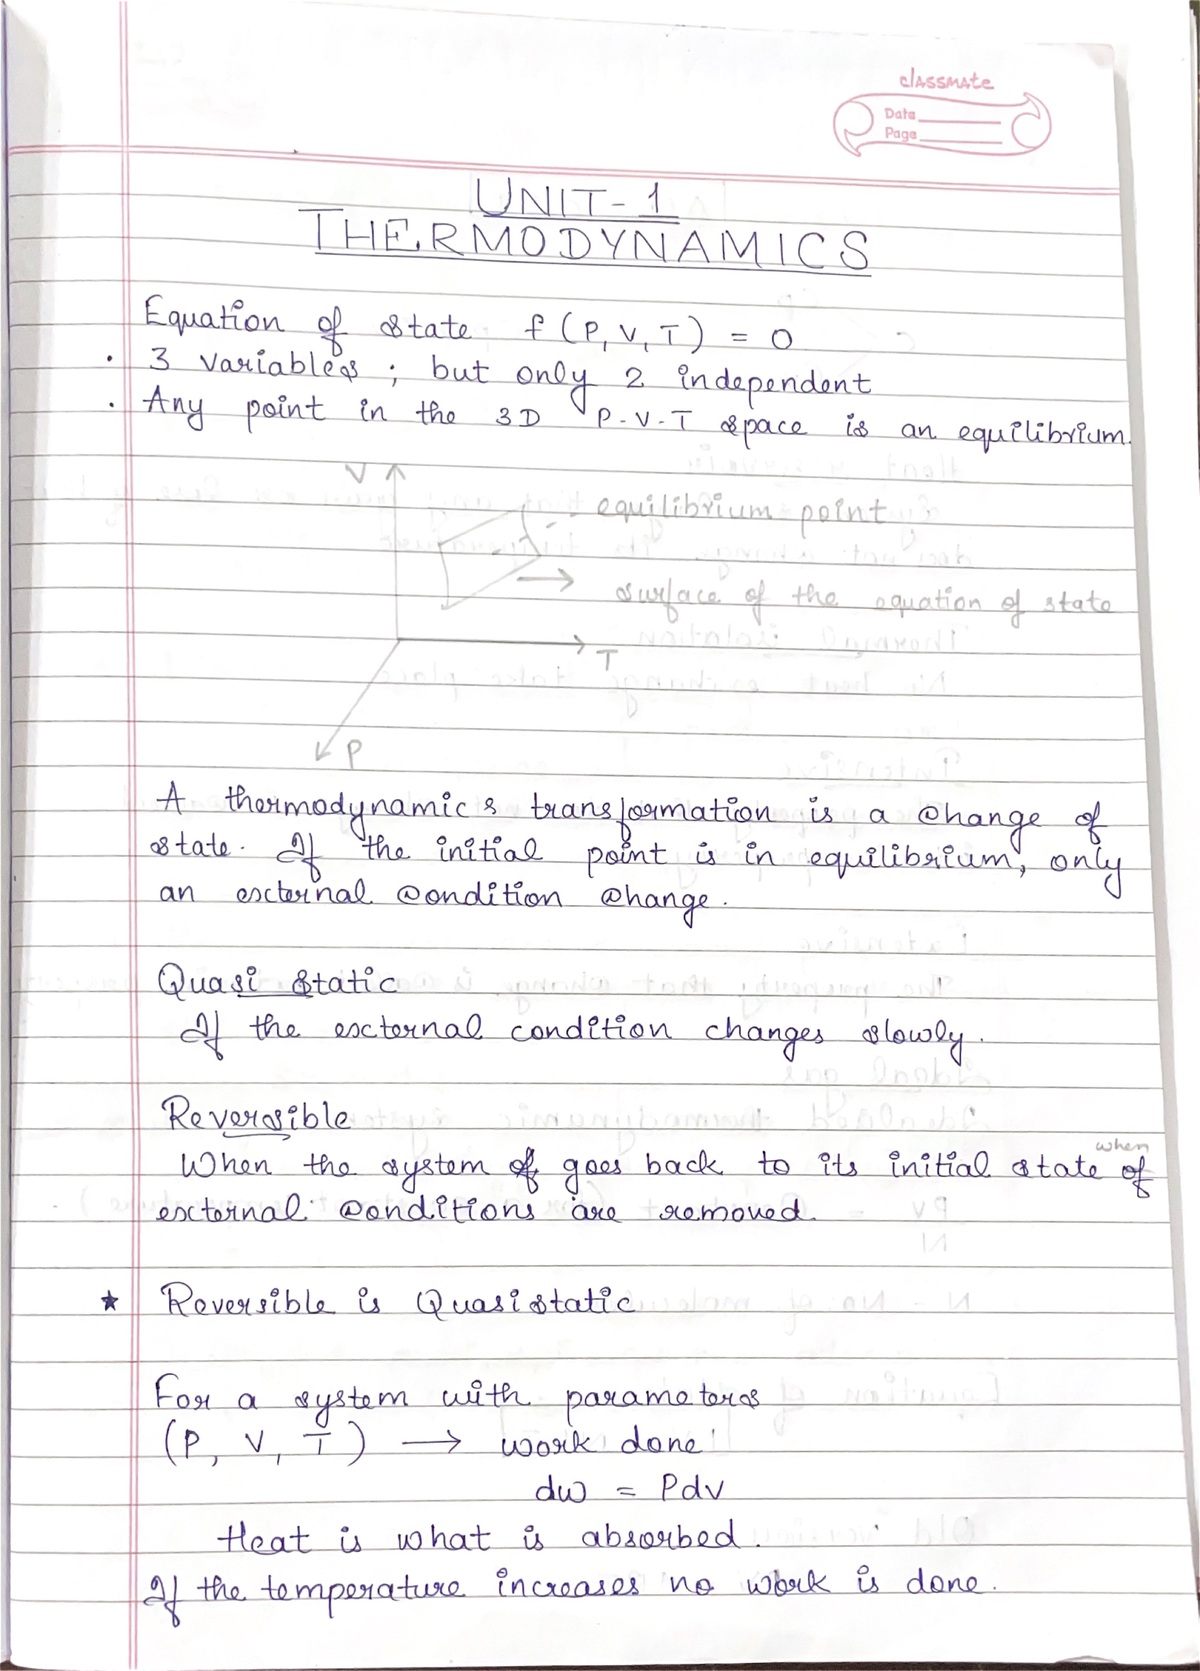 classmate
Date
Page
UNIT-1
THERMODYNAMICS
Equation of state f(P, V, T) = 0
· 3 variables ; but only 2 independent
· Any point in the 3D P-V-T space is an equilibrium.
V
equilibrium point
surface of the equation of state
T
P
A thermodynamics transformation is a change of
state. If the initial point is in equilibrium, only
an external condition change.
Quasi static
If the external condition changes slowly.
Reversible
when
When the system of goes back to its initial state of
external conditions are removed.
★ Reversible is Quasistatic
For a system with parameters
(P, V, T) → work done
dw = Pdv
Heat is what is absorbed.
If the temperature increases no work is done.